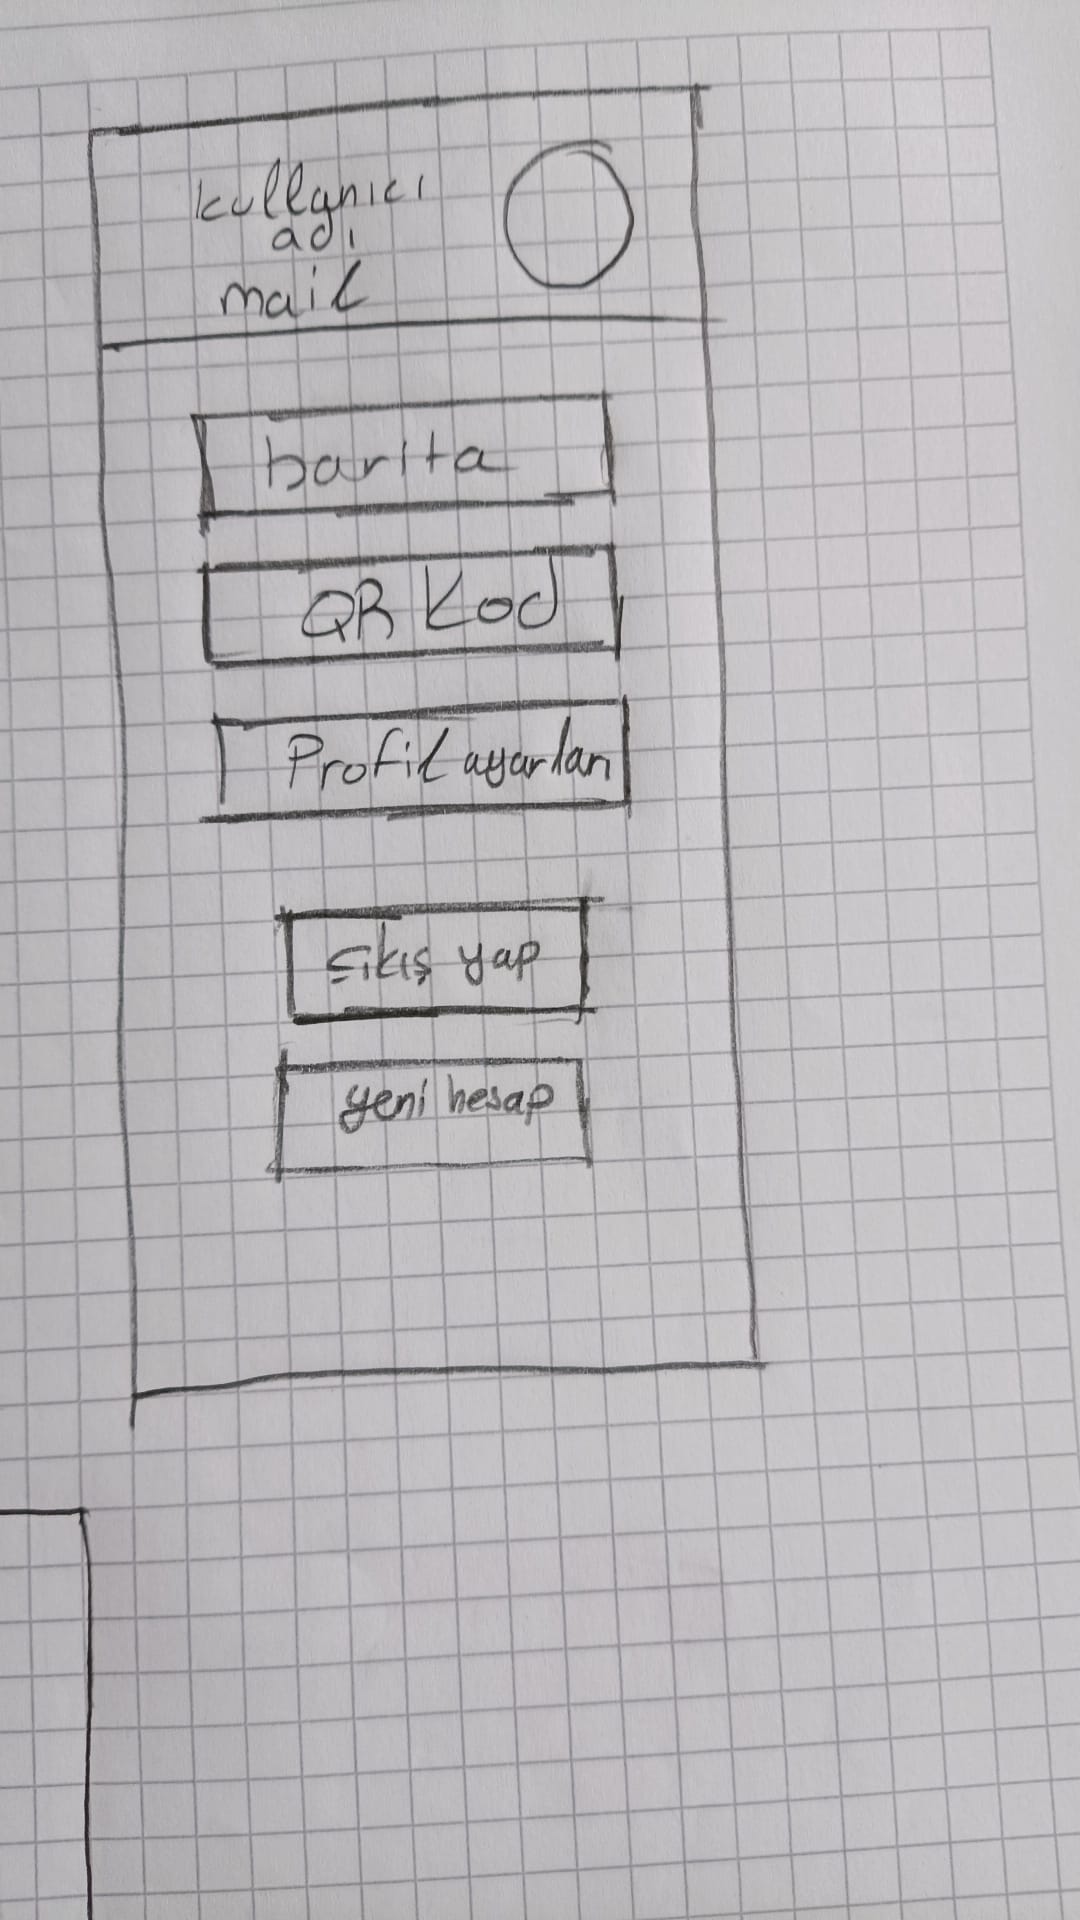 kullanıcı
adı
mail
harita
QR Kod
Profil ayarları
çıkış yap
yeni hesap